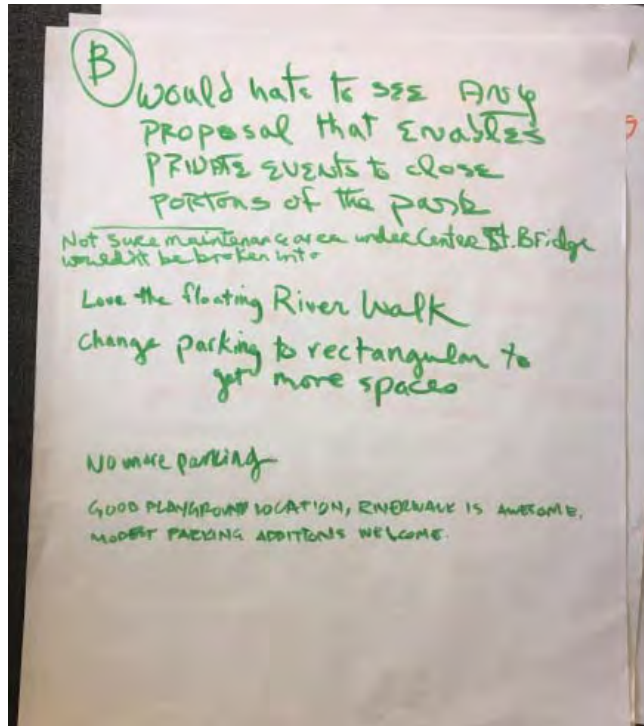 B
would hate to see Any
proposal that Enables
PRIVATE EVENTS to close
PORTONS of the park
Not sure maintenance area under Center St. Bridge
wouldn't be broken into
Love the floating River Walk
Change parking to rectangular to
get more spaces
No more parking
GOOD PLAYGROUND LOCATION, RIVERWALK IS AWESOME.
MODEST PARKING ADDITIONS WELCOME.